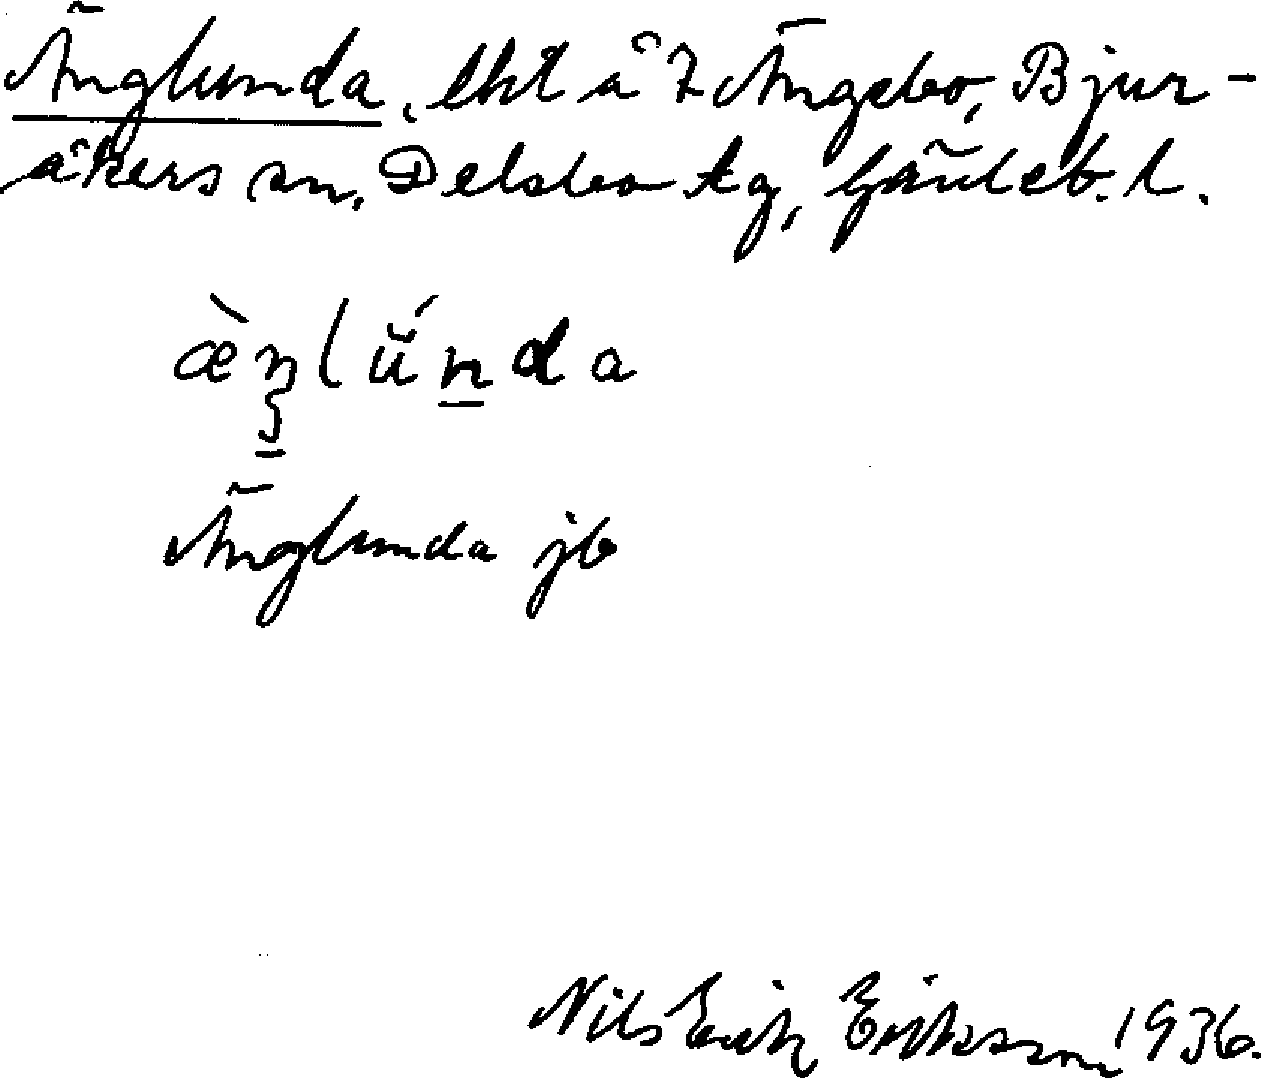 Änglunda, lht å 7 Ängebo, Bjur-
åkers sn, Delsbo tg, Gävleb. l.
Änglunda jb
Nils Erik Eriksson 1936.